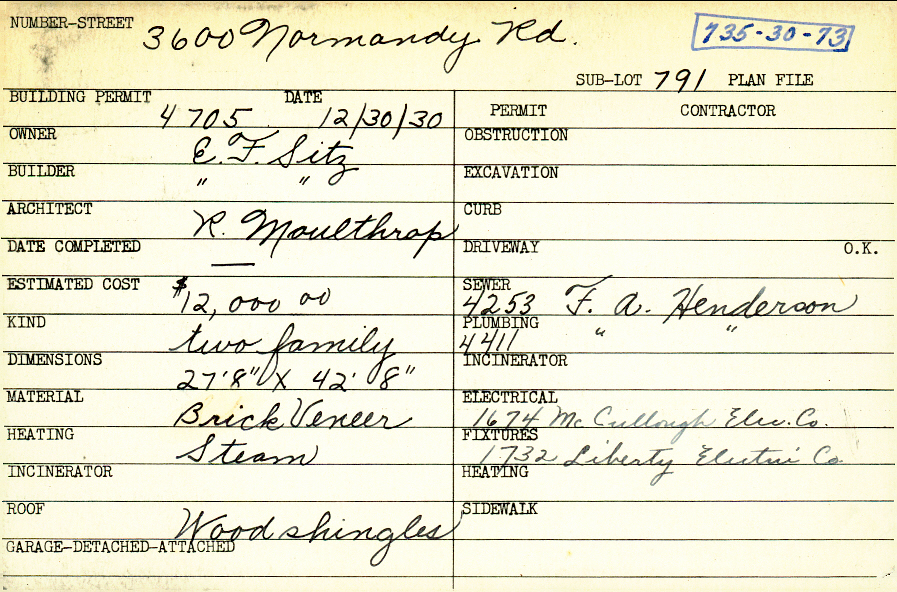 NUMBER-STREET 3600 Normandy Rd. 735-30-73
SUB-LOT 791 PLAN FILE
BUILDING PERMIT 4705 DATE 12/30/30
PERMIT CONTRACTOR
OWNER E. F. Sitz
OBSTRUCTION
BUILDER " "
EXCAVATION
ARCHITECT R. Moulthrop
CURB
DATE COMPLETED —
DRIVEWAY O.K.
ESTIMATED COST $12,000 00
SEWER 4253 F. A. Henderson
KIND two family
PLUMBING 4411 " "
DIMENSIONS 27'8" X 42'8"
INCINERATOR
MATERIAL Brick Veneer
ELECTRICAL 1674 McCullough Elec. Co.
HEATING Steam
FIXTURES 1732 Liberty Electric Co
INCINERATOR
HEATING
ROOF Wood shingles
SIDEWALK
GARAGE-DETACHED-ATTACHED